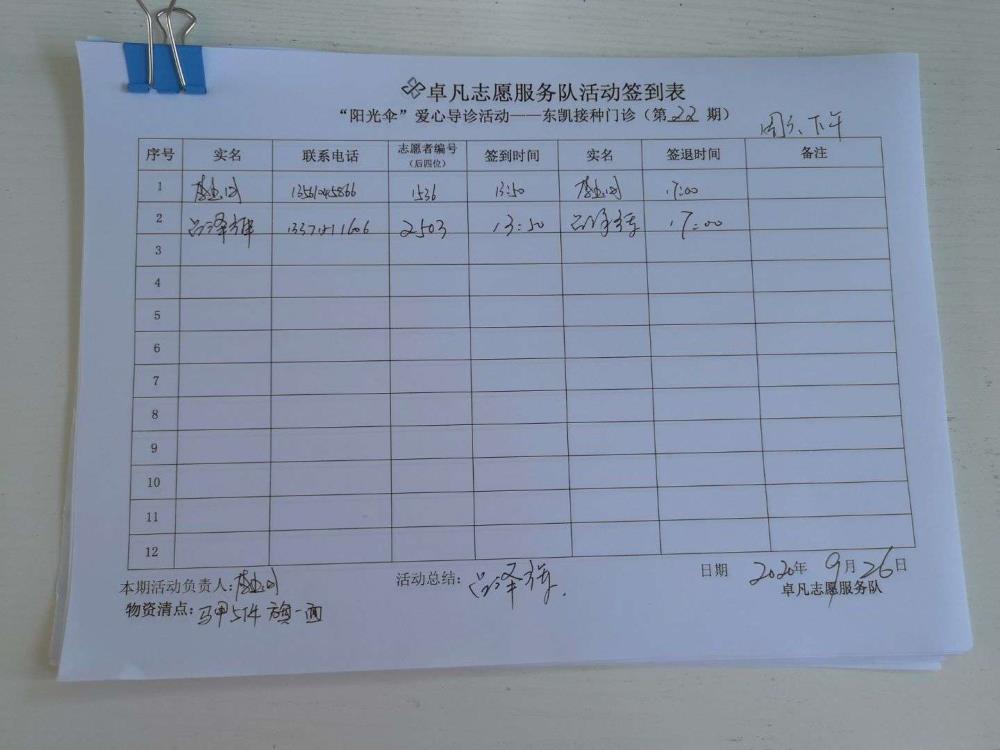 卓凡志愿服务队活动签到表
“阳光伞”爱心导诊活动——东凯接种门诊（第22期）
周六、下午
序号 实名 联系电话 志愿者编号（后四位） 签到时间 实名 签退时间 备注
1 1536 13:50 17:00
2 吕泽 2503 13:50 吕泽 17:00
3
4
5
6
7
8
9
10
11
12
本期活动负责人：
活动总结：吕泽
日期 2020年9月26日
物资清点：马甲5件 旗一面
卓凡志愿服务队